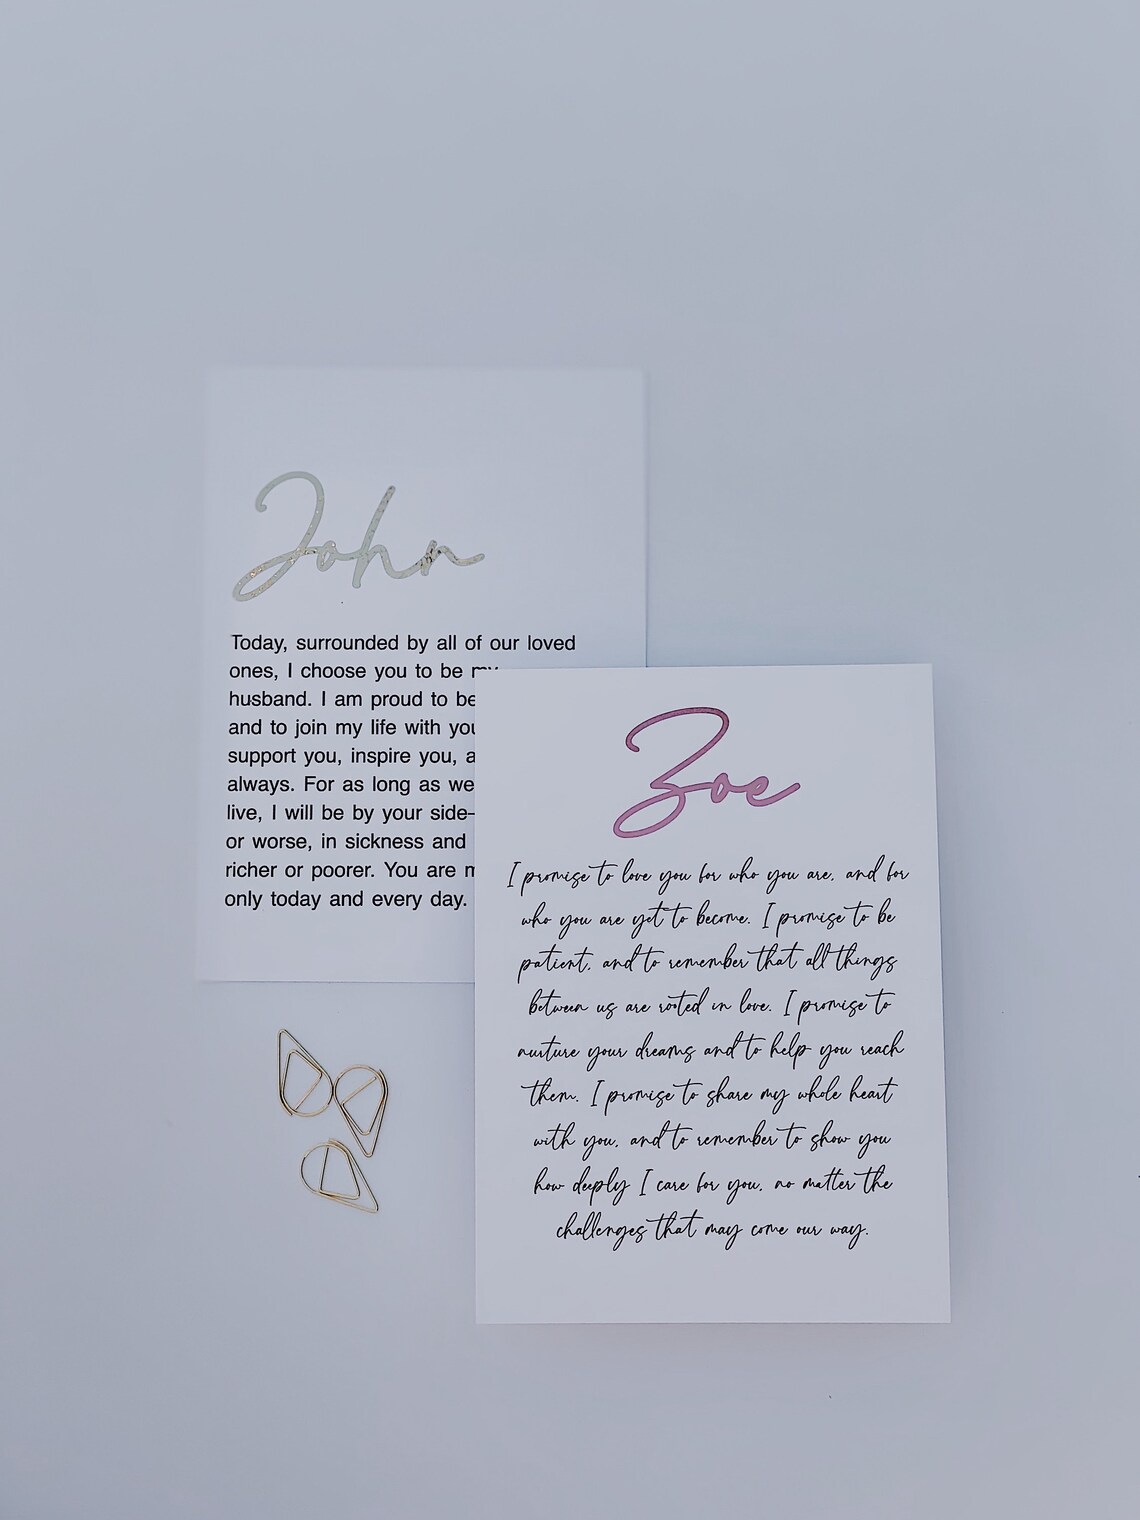 John
Today, surrounded by all of our loved
ones, I choose you to be my
husband. I am proud to be
and to join my life with you
support you, inspire you, a
always. For as long as we
live, I will be by your side-
or worse, in sickness and
richer or poorer. You are
only today and every day.
Zoe
I promise to love you for who you are, and for
who you are yet to become. I promise to be
patient, and to remember that all things
between us are rooted in love. I promise to
nurture your dreams and to help you reach
them. I promise to share my whole heart
with you, and to remember to show you
how deeply I care for you, no matter the
challenges that may come our way.